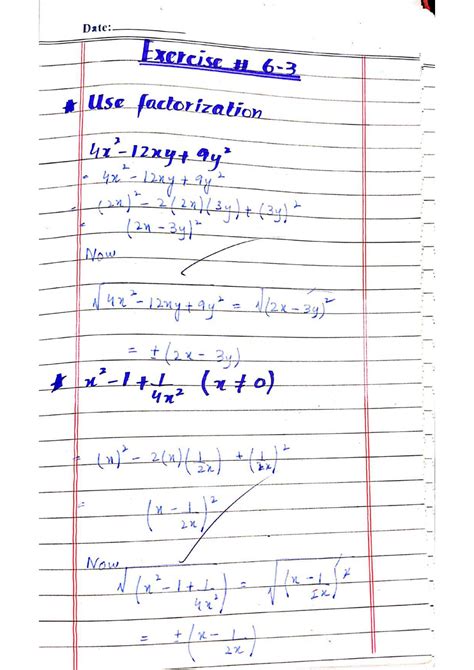 Date:
Exercise # 6-3
* Use factorization
4x² - 12xy + 9y²
= 4x² - 12xy + 9y²
= (2x)² - 2(2x)(3y) + (3y)²
= (2x - 3y)²
Now
√4x² - 12xy + 9y² = √(2x - 3y)²
= ± (2x - 3y)
* x² - 1 + 1/4x² (x ≠ 0)
= (x)² - 2(x)(1/2x) + (1/2x)²
= (x - 1/2x)²
Now
√(x² - 1 + 1/4x²) = √(x - 1/2x)²
= ± (x - 1/2x)